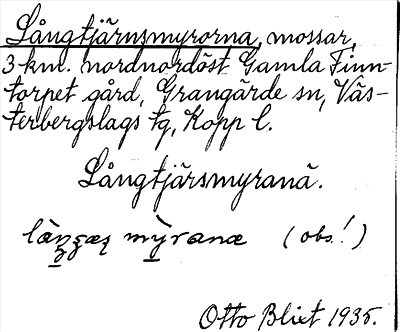 Långtjärnsmyrorna, mossar,
3 km. nordnordöst Gamla Finn-
torpet gård, Grangärde sn, Väs-
terbergslags tg, Kopp l.
Långtjärsmyranä.
(obs!)
Otto Blixt 1935.